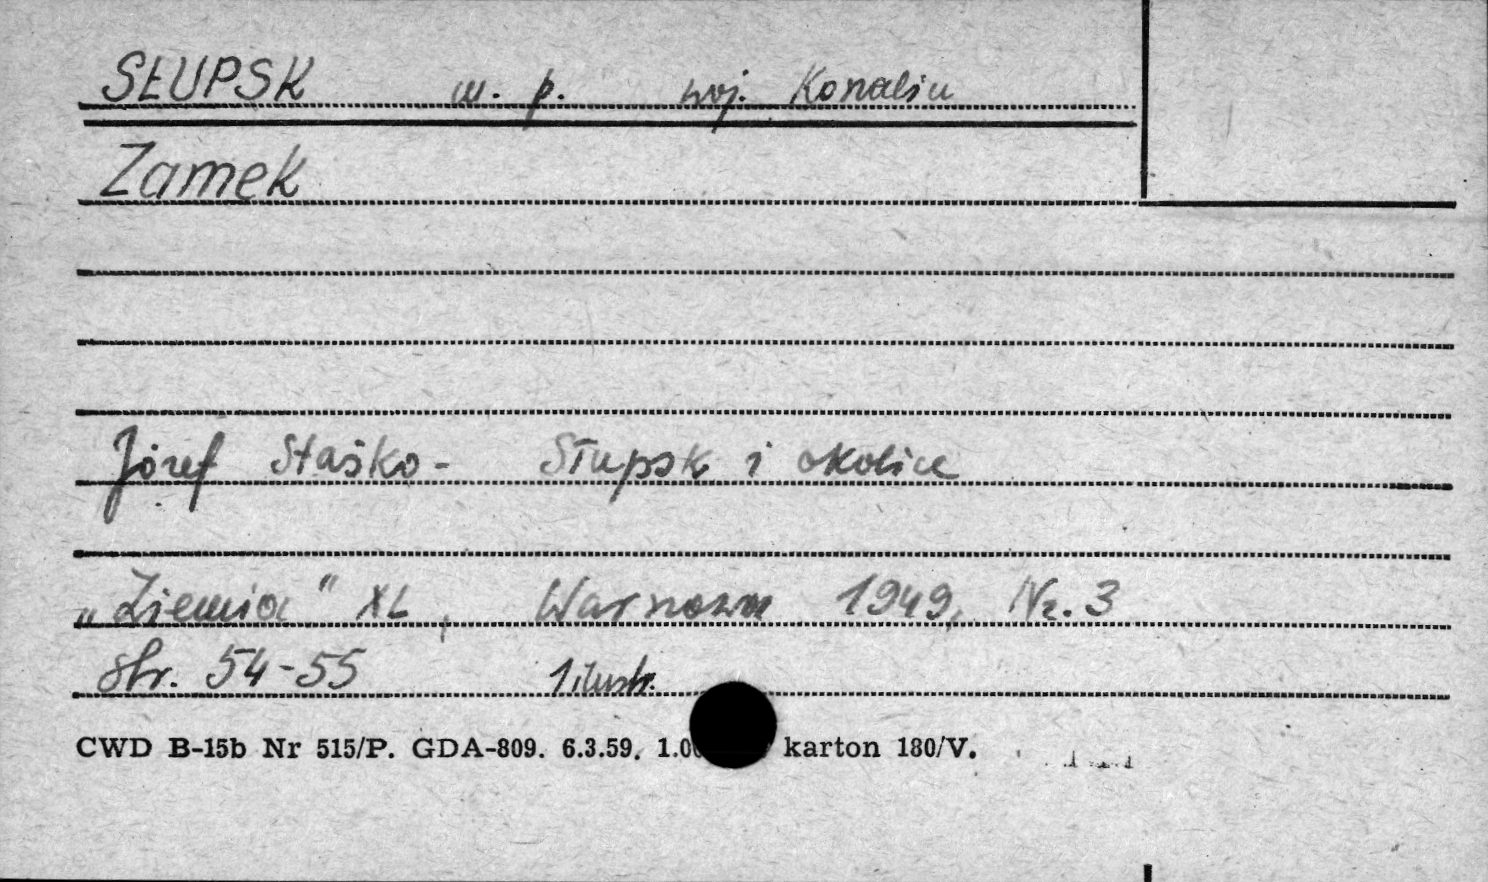 SŁUPSK m. p. woj. Koszalin
Zamek
Józef Staśko - Słupsk i okolice
„Ziemia" XL, Warszawa 1949, Nr. 3
str. 54-55 1 ilustr.
CWD B-15b Nr 515/P. GDA-809. 6.3.59. karton 180/V.